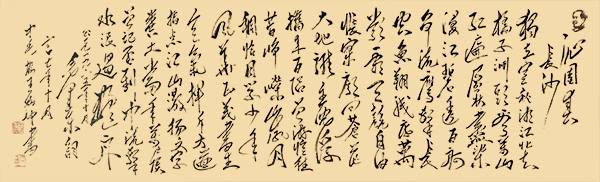 沁园春
长沙
独立寒秋湘江北去
橘子洲头看万山
红遍层林尽染
漫江碧透百舸
争流鹰击长
空鱼翔浅底万
类霜天竞自由
怅寥廓问苍茫
大地谁主沉浮
携来百侣曾游忆往
昔峥嵘岁月
稠恰同学少年
风华正茂书生
意气挥斥方遒
指点江山激扬文字
粪土当年万户侯
曾记否到中流击
水浪遏飞舟